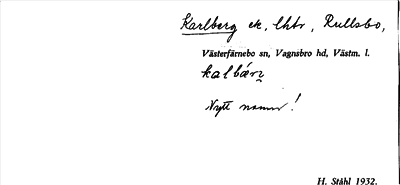 Karlberg ek, lhtr, Kullsbo,
Västerfärnebo sn, Vagnsbro hd, Västm. l.
kalbærʒ
Nytt namn!
H. Ståhl 1932.